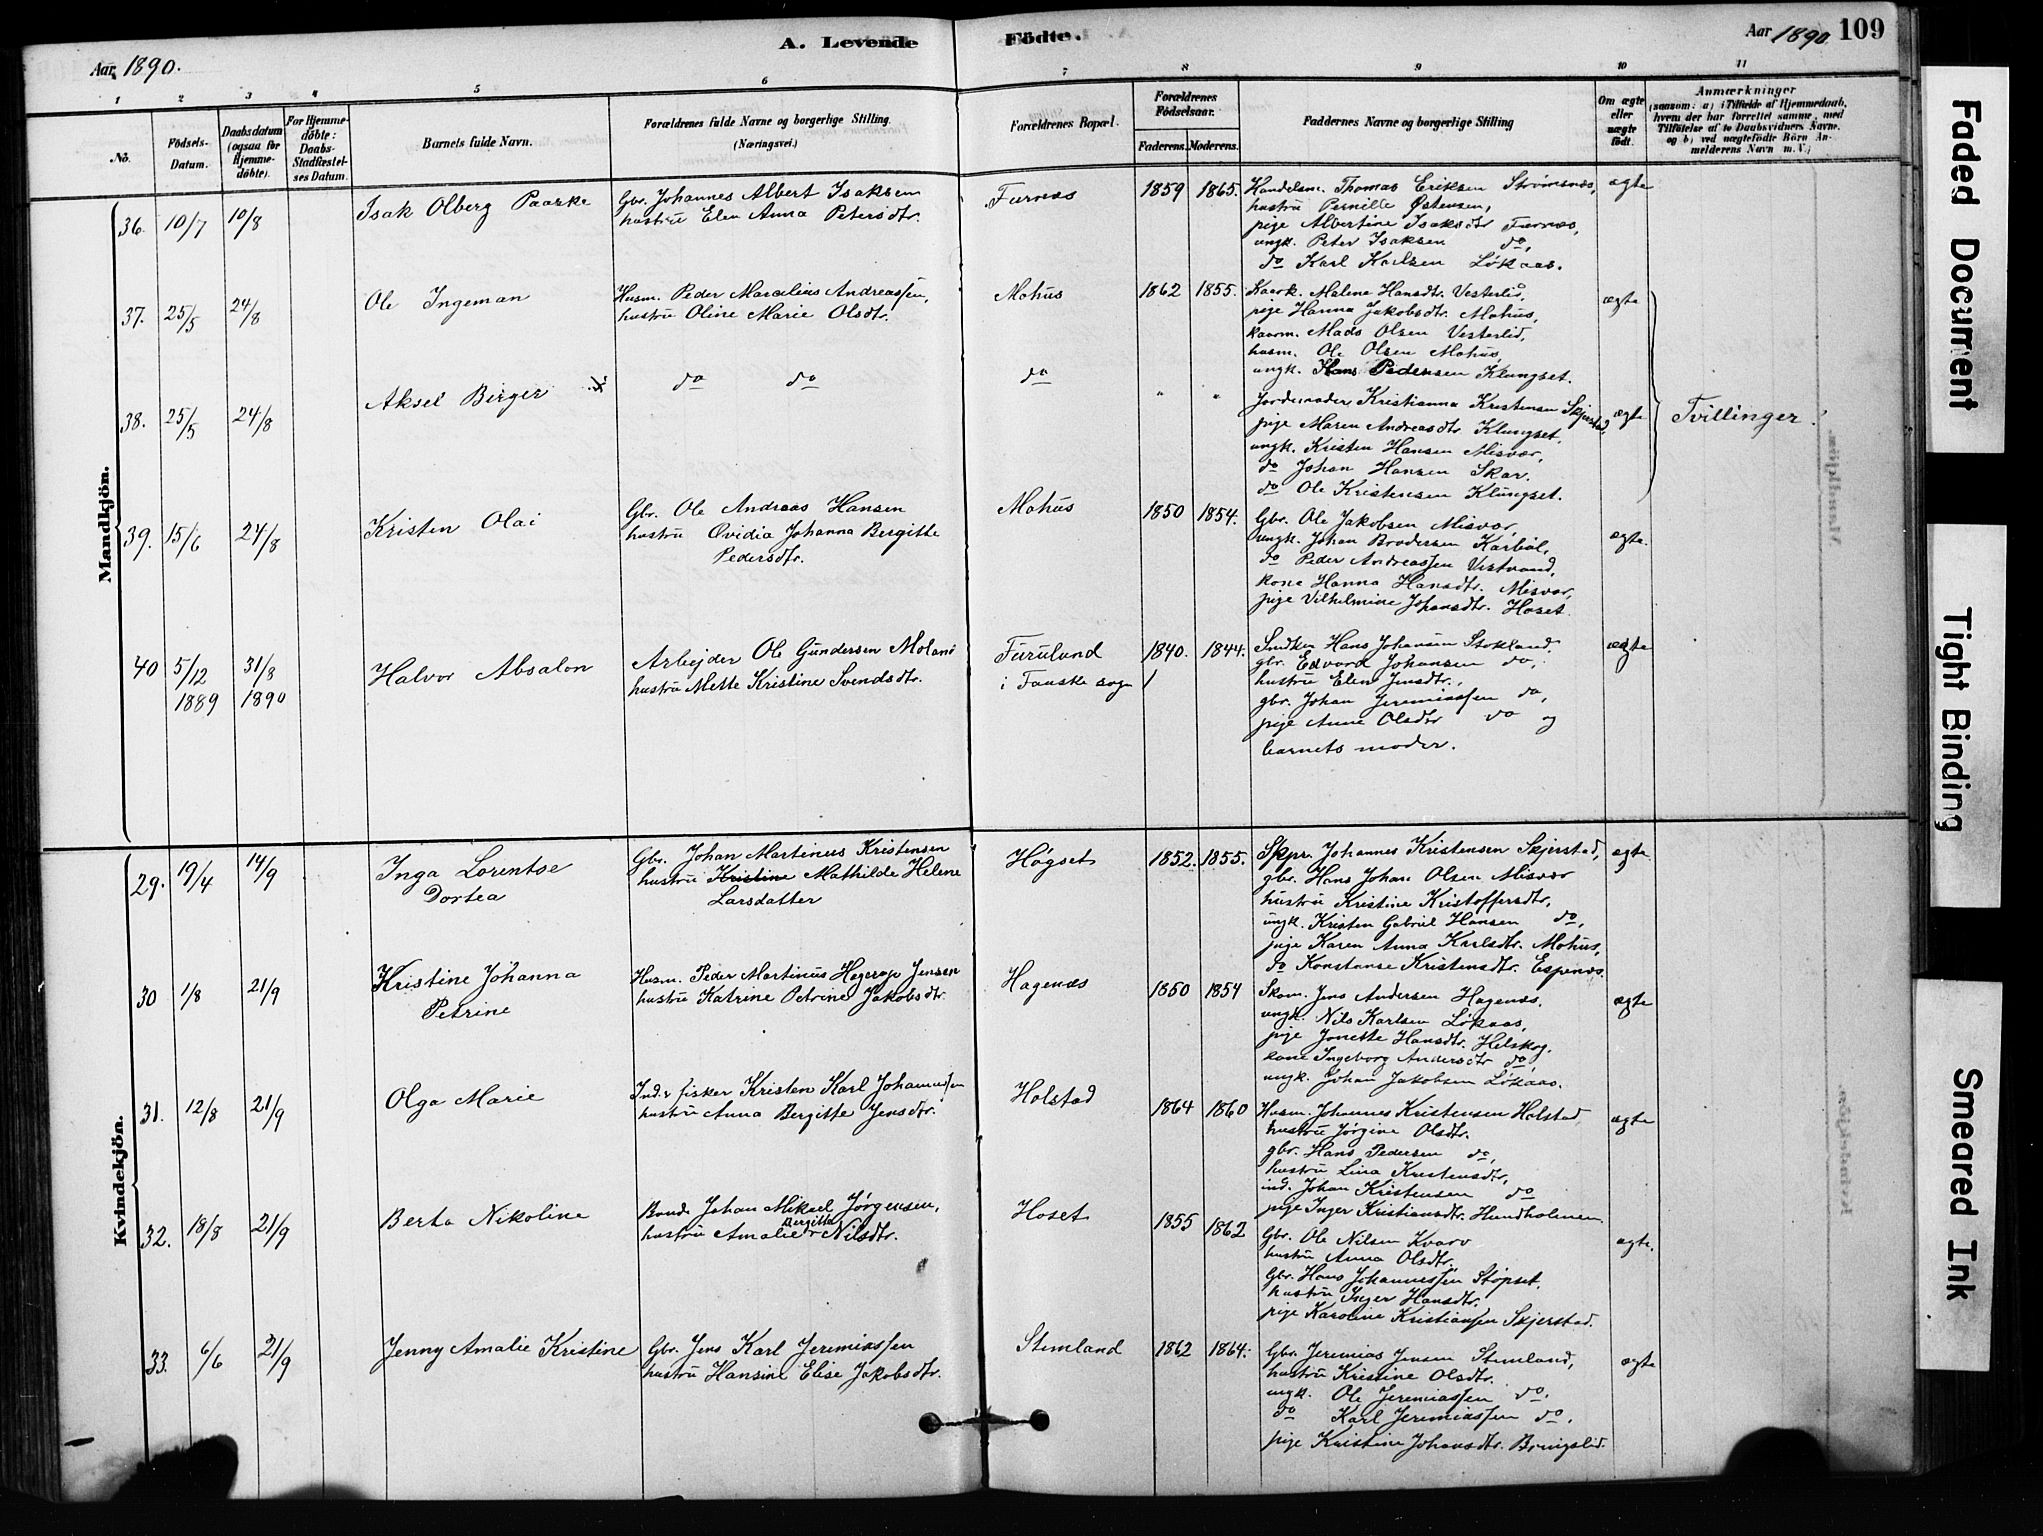 A. Levende Födte.
Aar 1890.
Aar 1890 109
1 2 3 4 5 6 7 8 9 10 11
No.
Födsels-Datum.
Daabsdatum (ogsaa for Hjemmedöbte).
For Hjemmedöbte: Daabs-Stadfæstelses Datum.
Barnets fulde Navn.
Forældrenes fulde Navne og borgerlige Stilling. (Næringsvei.)
Forældrenes Bopæl.
Forældrenes Födselsaar.
Faderens. Moderens.
Faddernes Navne og borgerlige Stilling
Om ægte eller uægte födt.
Anmærkninger
(saasom: a) i Tilfælde af Hjemmedaab, hvem der har forrettet samme, med Tilföielse af to Daabsvidners Navne, og b) ved uægtefödte Börn Anmelderens Navn m.V.;
Mandkjön.
36. 10/7 10/8 Isak Olberg Paaske
Gbr. Johannes Albert Isaksen
hustru Elen Anna Petersdtr.
Furnes 1859 1865.
Handelsm. Thomas Eriksen Strømsnes,
hustru Pernille Østensen,
pige Albertine Isaksdtr Furnes,
ungk. Peter Isaksen do,
do Karl Karlsen Løkaas.
ægte
37. 25/5 24/8 Ole Ingeman
Husm. Peder Marcelius Andreassen,
hustru Oline Marie Olsdtr.
Mohus 1862 1855.
Kaark. Malene Hansdtr. Vesterlid,
pige Hanna Jakobsdtr. Mohus,
kaarm. Mads Olsen Vesterlid,
husm. Ole Olsen Mohus,
ungk. Hans Pedersen Klungset.
ægte
38. 25/5 24/8 Aksel Birger
do do
do " "
Jordemoder Kristianna Kristensen Skjerstad,
pige Maren Andreasdtr Klungset,
ungk. Kristen Hansen Misvær,
do Johan Hansen Skar.
do Ole Kristensen Klungset.
ægte
Tvillinger.
39. 15/6 24/8 Kristen Olai
Gbr. Ole Andreas Hansen
hustru Øvidia Johanna Bergitte
Pedersdtr.
Mohus 1850 1854.
Gbr. Ole Jakobsen Misvær,
ungk. Johan Brodersen Karbøl,
do Peder Andreassen Vestvand,
kone Hanna Hansdtr. Misvær,
pige Vilhelmine Johansdtr. Hoset
ægte.
40 5/12 1889 31/8 1890 Halvor Absalon
Arbejder Ole Gundersen Molani
hustru Mette Kristine Svendsdtr.
Furulund
i Fauske sogn
1840. 1844.
Snedker Hans Johansen Stokland,
gbr. Edvard Johansen do,
hustru Elen Jensdtr.,
gbr. Johan Jeremiassen do,
pige Anne Olsdtr do og
barnets moder.
ægte
Kvindekjön.
29. 19/4 14/9 Inga Lorentse
Dortea
Gbr. Johan Martinus Kristensen
hustru Kristine Mathilde Helene
Larsdatter
Høgset 1852. 1855.
Skpr. Johannes Kristensen Skjerstad,
gbr. Hans Johan Olsen Misvær
hustru Kristine Kristoffersdtr,
ungk. Kristen Gabriel Hansen do,
pige Karen Anna Karlsdtr. Mohus,
do Konstanse Kristensdtr. Espenes.
ægte
30 1/8 21/9 Kristine Johanna
Petrine
Husm. Peder Martinus Hegerop Jensen
hustru Katrine Petrine Jakobsdtr.
Hagenes 1850 1854
Skom. Jens Andersen Hagenes,
ungk. Nils Karlsen Løkaas,
pige Jonette Hansdtr. Helskog,
kone Ingeborg Andersdtr do,
ungk. Johan Jakobsen Løkaas.
ægte
31. 12/8 21/9 Olga Marie
Ind. & fisker Kristen Karl Johannessen
hustru Anna Bergitte Jensdtr.
Holstad 1864 1860
Husm. Johannes Kristensen Holstad
hustru Jørgine Olsdtr.
gbr. Hans Pedersen do,
hustru Lina Kristensdtr,
ind. Johan Kristensen do
pige Inger Kristiansdtr. Hundholmen.
ægte
32. 18/8 21/9 Berta Nikoline
Bonde Johan Mikael Jørgensen,
hustru Amalie Bergitte Nilsdtr.
Hoset 1855 1862
Gbr. Ole Nilsen Kvarv
hustru Anna Olsdtr.
Gbr. Hans Johannessen Støpset,
hustru Inger Hansdtr.
pige Karoline Kristiansen Skjerstad.
ægte.
33. 6/6 21/9 Jenny Amalie Kristine
Gbr. Jens Karl Jeremiassen
hustru Hansine Elise Jakobsdtr.
Stemland 1862 1864.
Gbr. Jeremias Jensen Stemland,
hustru Kristine Olsdtr.
ungk. Ole Jeremiassen do.
do Karl Jeremiassen do.
pige Kristine Johansdtr. Bringslid.
ægte
Faded Document
Tight Binding
Smeared Ink